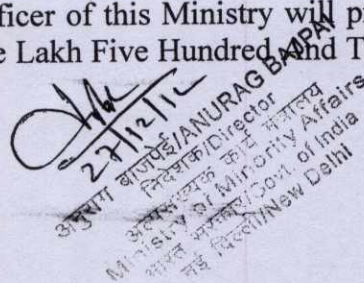 ficer of this Ministry will p
e Lakh Five Hundred And T
27/12/12
अनुराग बाजपेई/ANURAG BAJPAI
निदेशक/Director
अल्पसंख्यक कार्य मंत्रालय
Ministry of Minority Affairs
भारत सरकार/Govt. of India
नई दिल्ली/New Delhi